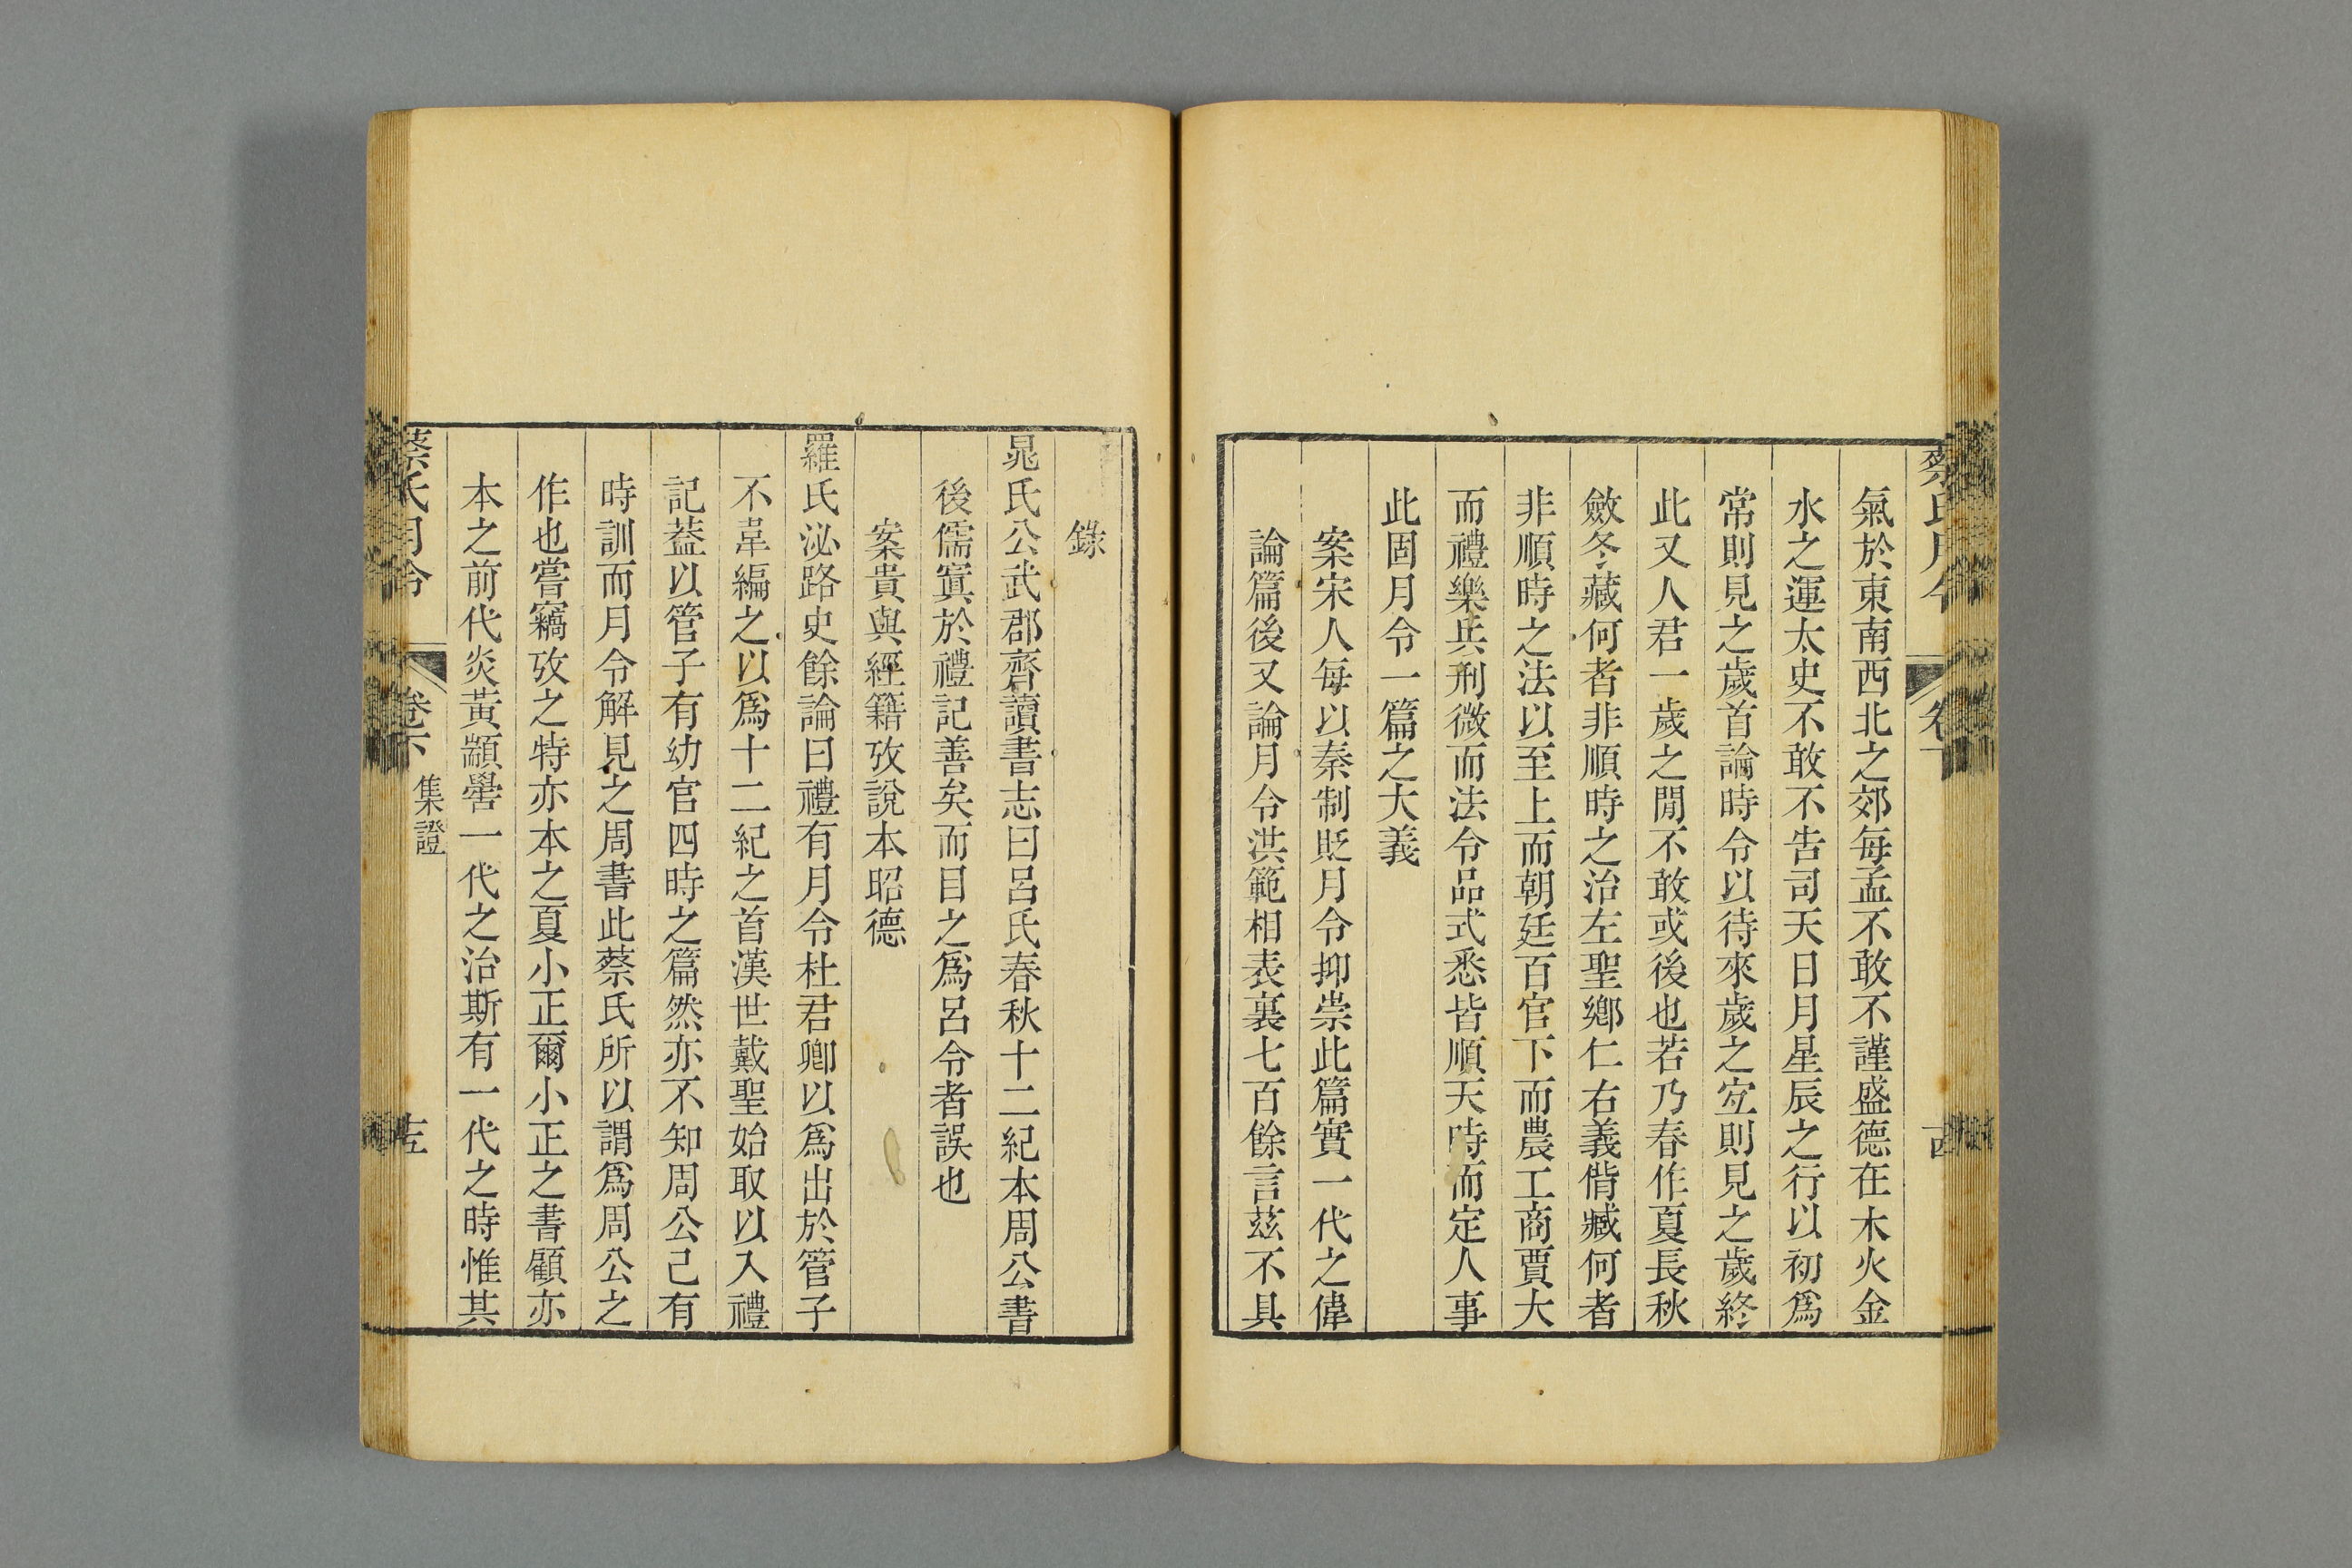 蔡氏月令 卷下 十四
氣於東南西北之郊每孟不敢不謹盛德在木火金
水之運太史不敢不告司天日月星辰之行以初爲
常則見之歲首論時令以待來歲之宐則見之歲終
此又人君一歲之閒不敢或後也若乃春作夏長秋
斂冬藏何者非順時之治左聖鄉仁右義偝臧何者
非順時之法以至上而朝廷百官下而農工商賈大
而禮樂兵刑微而法令品式悉皆順天時而定人事
此固月令一篇之大義
案宋人每以秦制貶月令抑祟此篇實一代之偉
論篇後又論月令洪範相表裏七百餘言茲不具
錄
晁氏公武郡齊讀書志曰呂氏春秋十二紀本周公書
後儒寘於禮記善矣而目之爲呂令者誤也
案貴與經籍攷說本昭德
羅氏泌路史餘論曰禮有月令杜君卿以爲出於管子
不韋編之以爲十二紀之首漢世戴聖始取以入禮
記葢以管子有幼官四時之篇然亦不知周公己有
時訓而月令解見之周書此蔡氏所以謂爲周公之
作也嘗竊攷之特亦本之夏小正爾小正之書顧亦
本之前代炎黃顓嚳一代之治斯有一代之時惟其
蔡氏月令 卷下 集證